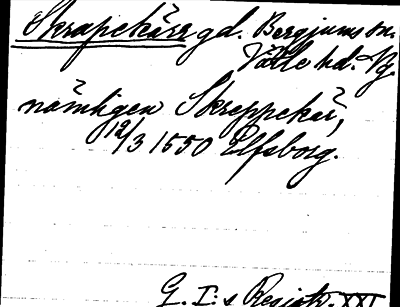 Skrapekärr gd. Bergjums sn.
Vätle hd. Vg.
nämligen Skreppekär,
12/3 1550 Elfsborg.
G. I:s Registr. XXI